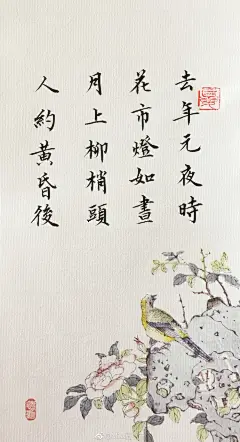 去年元夜時
花市燈如晝
月上柳梢頭
人約黃昏後